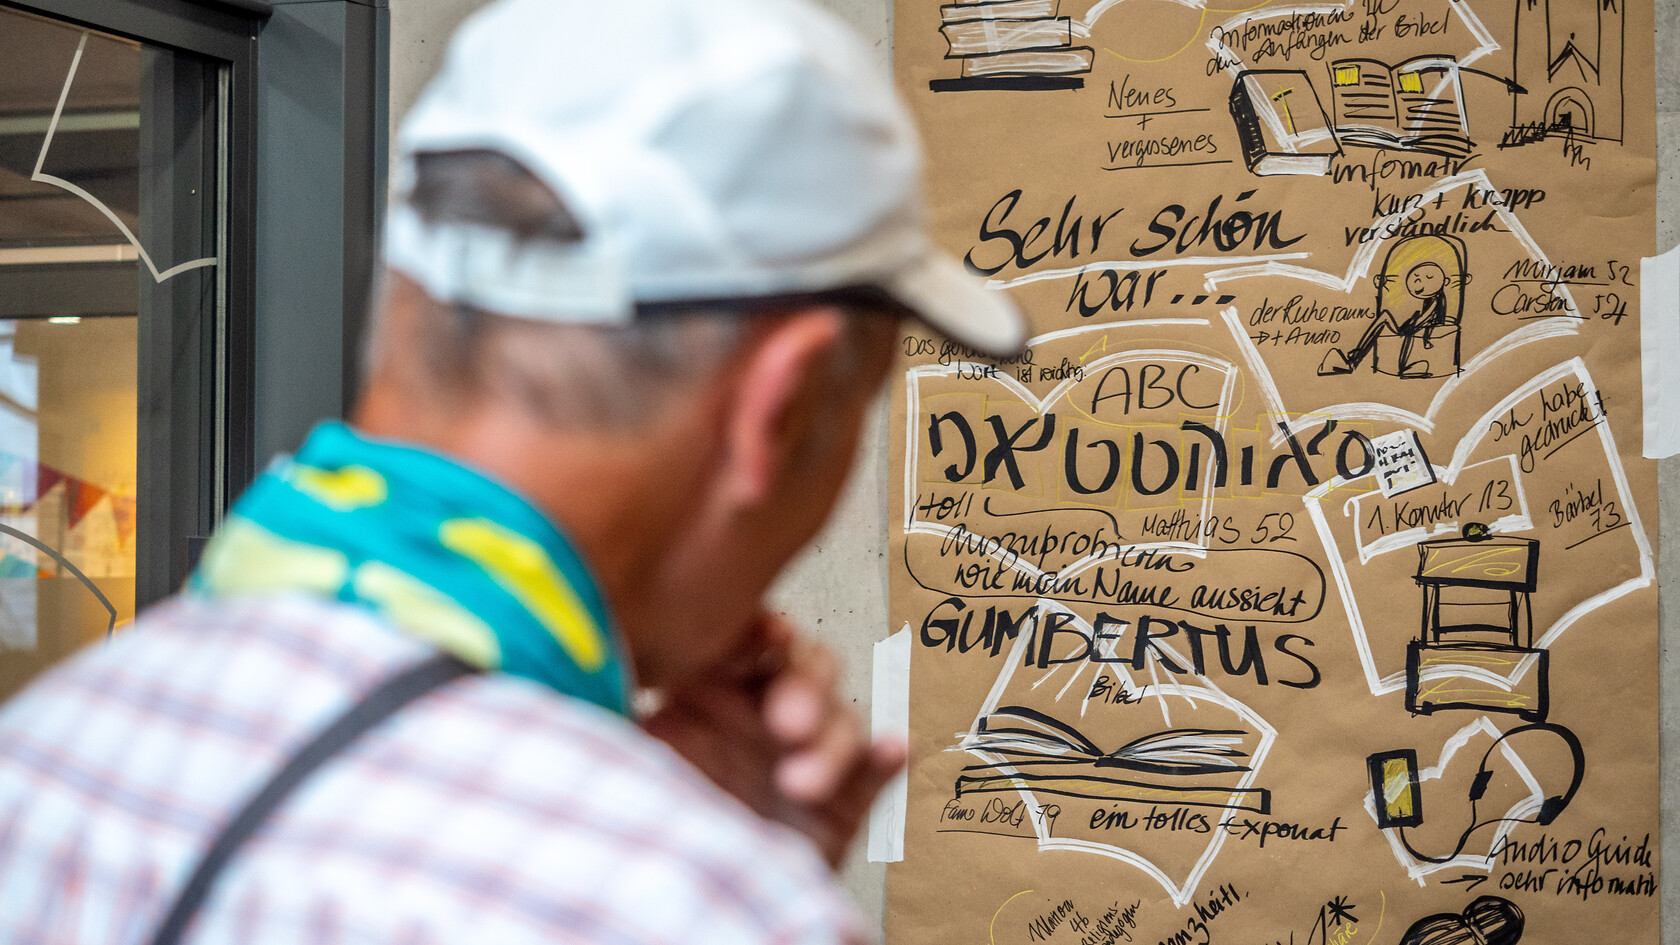 Informationen zu
den Anfängen der Bibel
Neues
+
vergessenes
informativ
kurz + knapp
verständlich
Sehr schön
war...
der Ruheraum
→ + Audio
Mirjam 52
Carsten 54
Das
Wort ist wichtig.
ABC
toll
auszuprobieren
wie mein Name aussieht
Matthias 52
Ich habe
gedruckt
Bärbel
73
1. Korinter 13
GUMBERTUS
Bibel
Fam Wolf 79
ein tolles Exponat
Audio Guide
→ sehr informativ
46